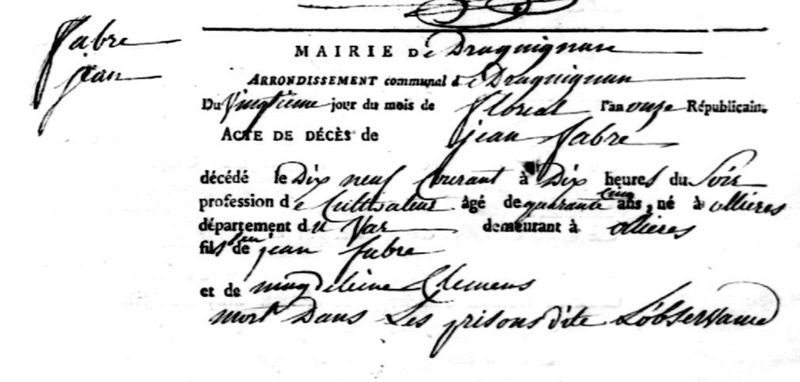 fabre
jean
MAIRIE De Draguignan
ARRONDISSEMENT communal de Draguignan
Du Vingtieme jour du mois de floreal l'an onze Républicain.
ACTE DE DÉCÈS de jean fabre
décédé le Dix neuf Courant à Dix heures du Soir
profession de Cultivateur âgé de quarante cinq ans, né à ollières
département du Var demeurant à ollieres
fils de feu jean fabre
et de magdeleine Clemens
mort Dans Les prisons dite L'observance